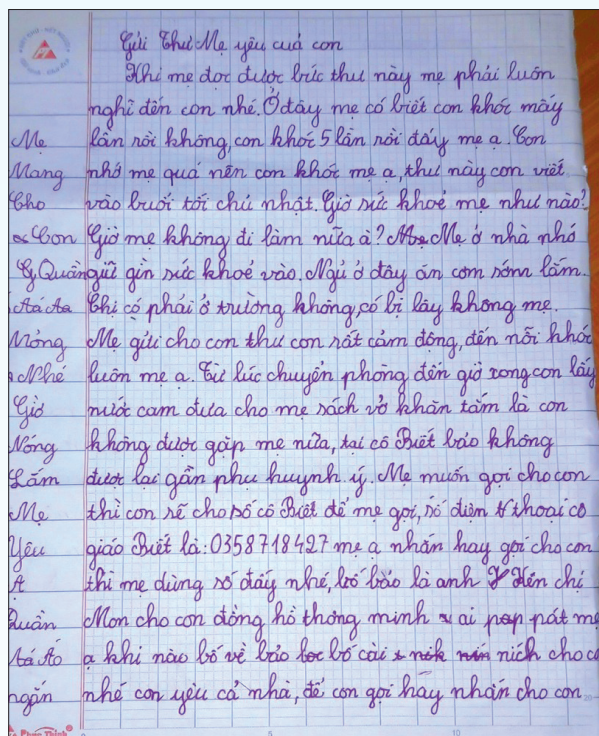 Gửi Thư Mẹ yêu cuả con
Khi mẹ đọc được bức thư này mẹ phải luôn
nghĩ đến con nhé. Ở đây mẹ có biết con khóc mấy
Mẹ lần rồi không, con khóc 5 lần rồi đấy mẹ ạ. Con
Mang nhớ mẹ quá nên con khóc mẹ ạ, thư này con viết
Cho vào buổi tối chủ nhật. Giờ sức khoẻ mẹ như nào?
Con Giờ mẹ không đi làm nữa à? Mẹ ở nhà nhớ
Quần giữ gìn sức khoẻ vào. Ngủ ở đây ăn cơm sớm lắm.
Chi có phải ở trường không, có bị lây không mẹ.
Mỏng Mẹ gửi cho con thư con rất cảm động, đến nỗi khóc
Nhé luôn mẹ ạ. Từ lúc chuyển phòng đến giờ xong con lấy
Giờ nước cam đưa cho mẹ sách vở khăn tắm là con
Nóng không được gặp mẹ nữa, tại cô Biết bảo không
Lắm được lại gần phụ huynh ý. Mẹ muốn gọi cho con
Mẹ thì con sẽ cho số cô Biết để mẹ gọi, số điện thoại cô
Yêu giáo Biết là: 0358718427 mẹ ạ nhắn hay gọi cho con
Ạ thì mẹ dùng số đấy nhé, bố bảo là anh Kên chị
Quần Mon cho con đồng hồ thông minh ai pát mẹ
Áo ạ khi nào bố về bảo bố cài ních cho co
ngắn nhé con yêu cả nhà, để con gọi hay nhắn cho con
Phan Thịnh